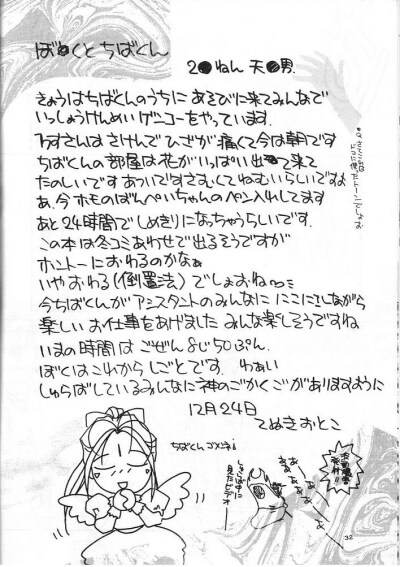 ば●くとちばくん
2●ねん 天●男
きょうはちばくんのうちに あそびに来てみんなで
いっしょうけんめい ゲンコーをやっています。
さけんで ひざが 痛くて今は朝です
ちばくんの部屋は花が いっぱい出●て来て
たのしいです あついですさむくてねむいらしいですよ
あ、今 ホモのばんぺいちゃんのペン入れしてます
あと24時間で しめきりになっちゃうらしいです.
この本は冬コミあわせで出るそうですが
ホントーにおわるのかなぁ
いや おわる(倒置法)でしょおね
今ちばくんが アシスタントのみんなに にこにこしながら
楽しい お仕事をあげました みんな楽しそうですね
いまの時間は ごぜん 8じ50ぷん.
ぼくは これから しごとです. わぁい
しゅらばしているみんなに神のごかくごがありますように
12月24日
てぬきおとこ
Q.さてこれは
ドコに使ったトーンでしょお
ちばくんゴメネ
見たビデオ
32